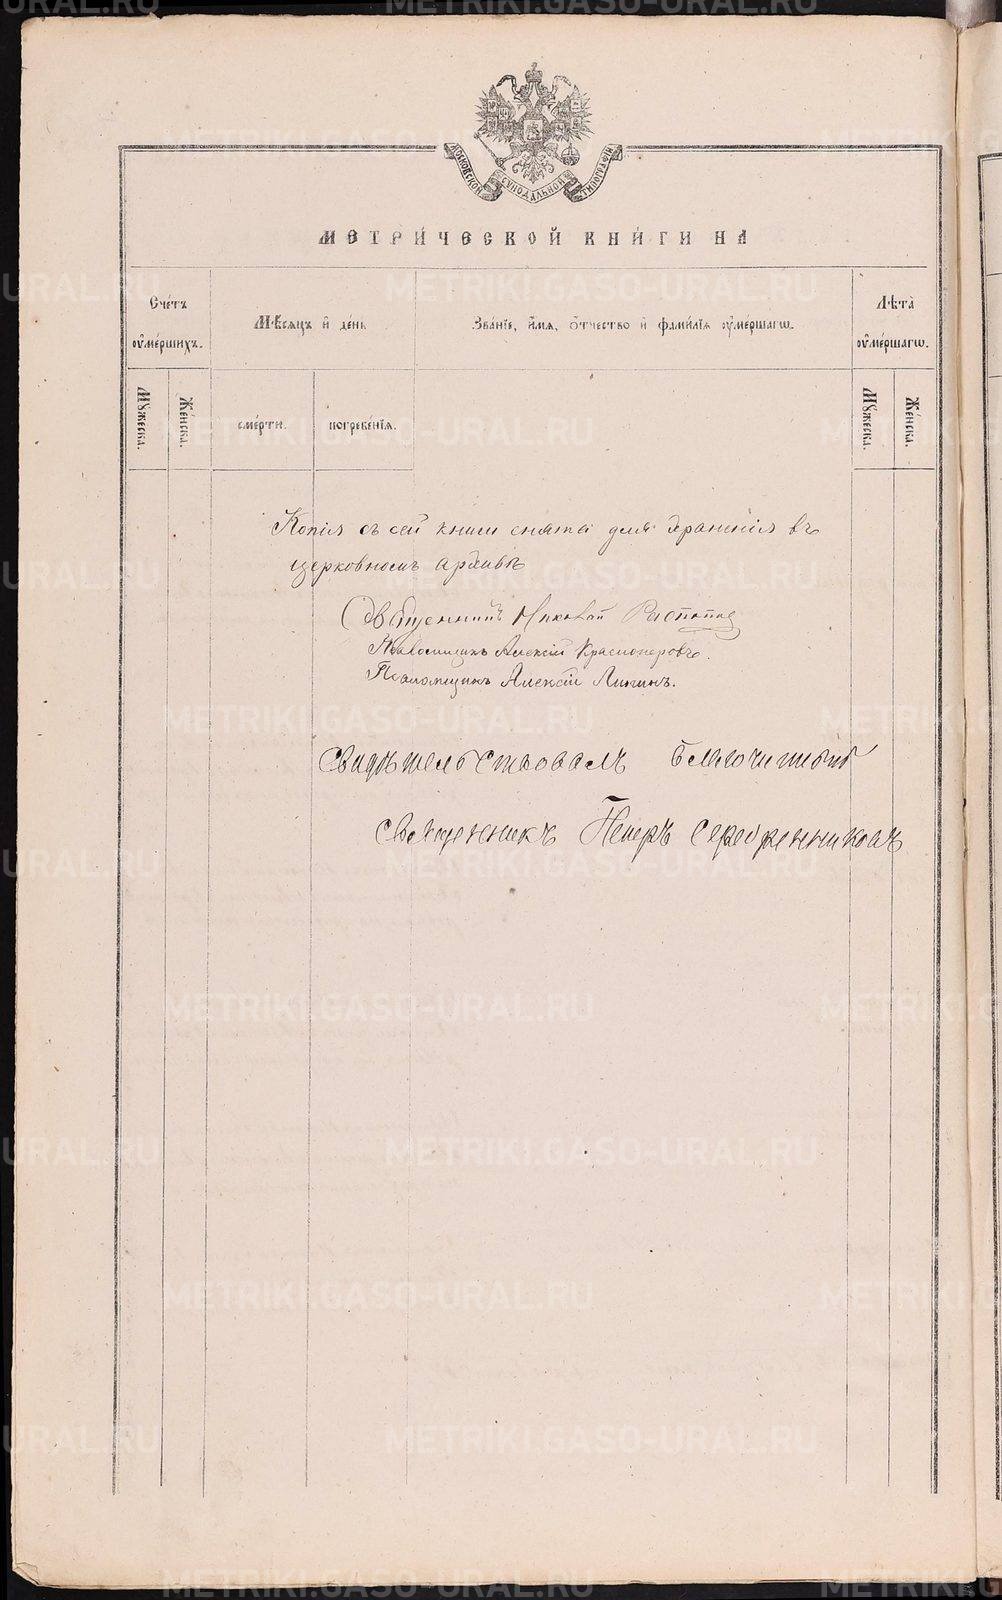 МОСКОВСКОЙ СУНОДАЛЬНОЙ ТИПОГРАФІИ
МЕТРИ́ЧЕСКОЙ КНИ́ГИ НА
Сче́тъ ѹ҆ме́ршихъ.
Мѣ́сяцъ и҆ де́нь
Зва́нїе, и҆́мѧ, ѻ҆́тчество и҆ фами́лїѧ ѹ҆ме́ршагѡ.
Лѣта̀ ѹ҆ме́ршагѡ.
Мꙋ́жеска.
Же́нска.
сме́рти.
погребе́нїѧ.
Мꙋ́жеска.
Же́нска.
Копія съ сей книги снята для храненія въ
церковномъ архивѣ
Священникъ Николай
Псаломщикъ Алексій Красноперовъ.
Псаломщикъ Алексій
Свидѣтельствовалъ благочинный
священникъ Петръ Серебренниковъ
METRIKI.GASO-URAL.RU